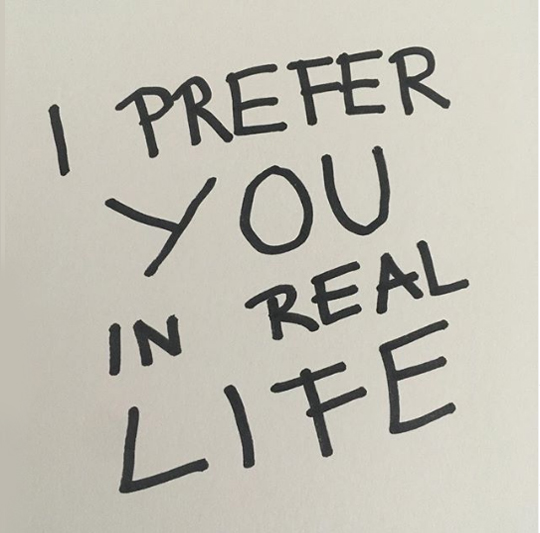 I PREFER
YOU
IN REAL
LIFE